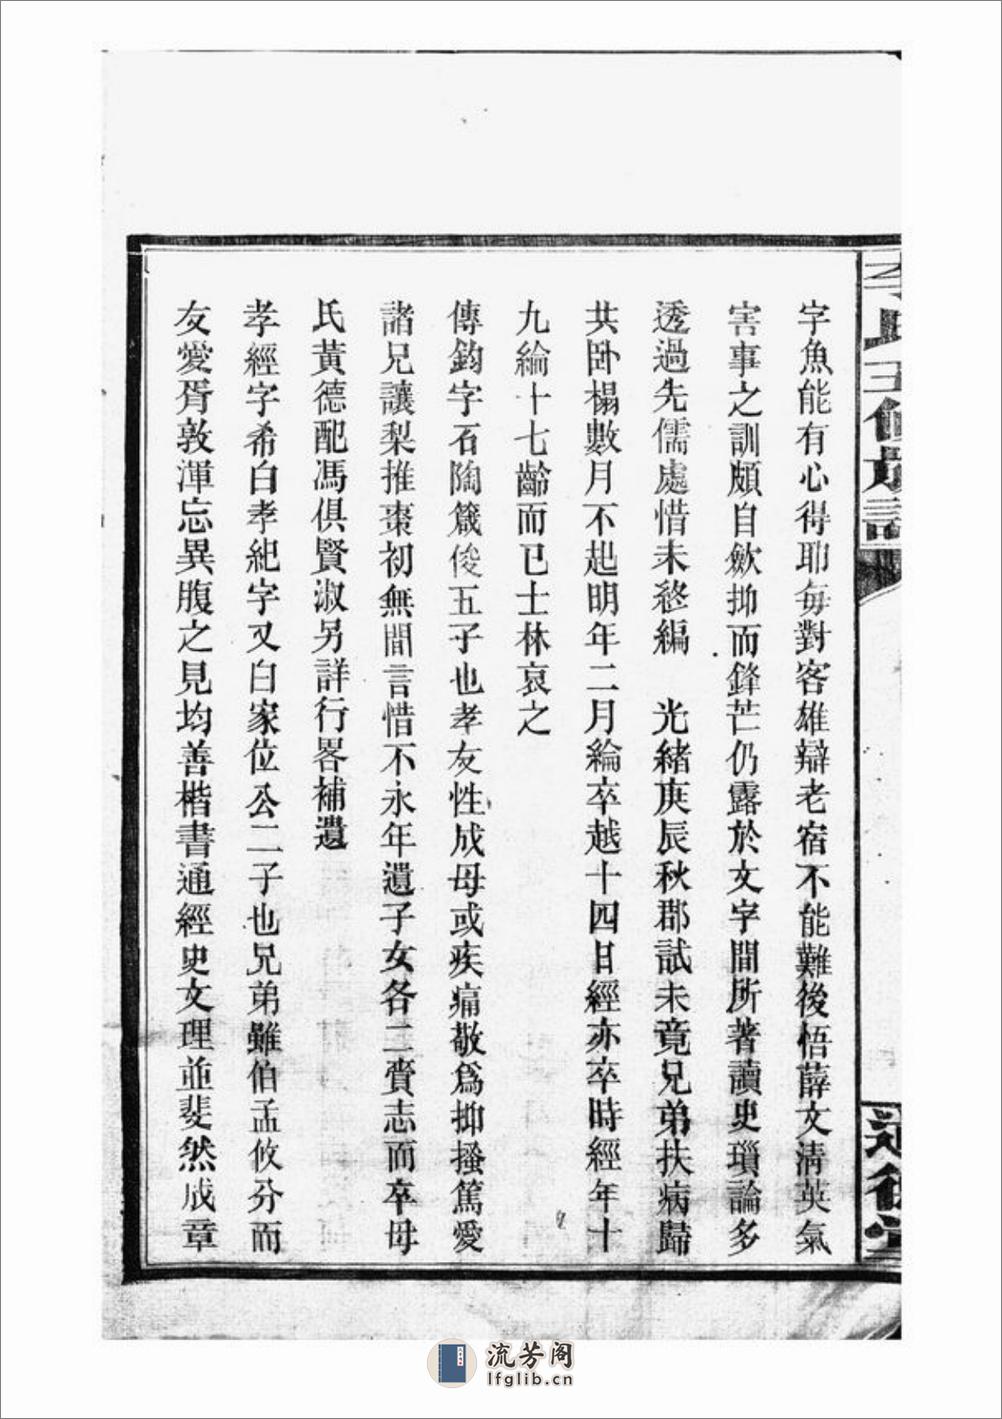 字魚能有心得耶每對客雄辯老宿不能難後悟薛文清英氣
害事之訓頗自斂抑而鋒芒仍露於文字間所著讀史瑣論多
透過先儒處惜未終編　光緒庚辰秋郡試未竟兄弟扶病歸
共卧榻數月不起明年二月綸卒越十四日經亦卒時經年十
九綸十七齡而已士林哀之
傳鈞字石陶箴俊五子也孝友性成母或疾痛敬爲抑搔篤愛
諸兄讓梨推棗初無間言惜不永年遺子女各二賫志而卒母
氏黃德配馮俱賢淑另詳行畧補遺
孝經字希白孝紀字又白家位公二子也兄弟雖伯孟攸分而
友愛胥敦渾忘異腹之見均善楷書通經史文理並斐然成章
流芳阁
lfglib.cn